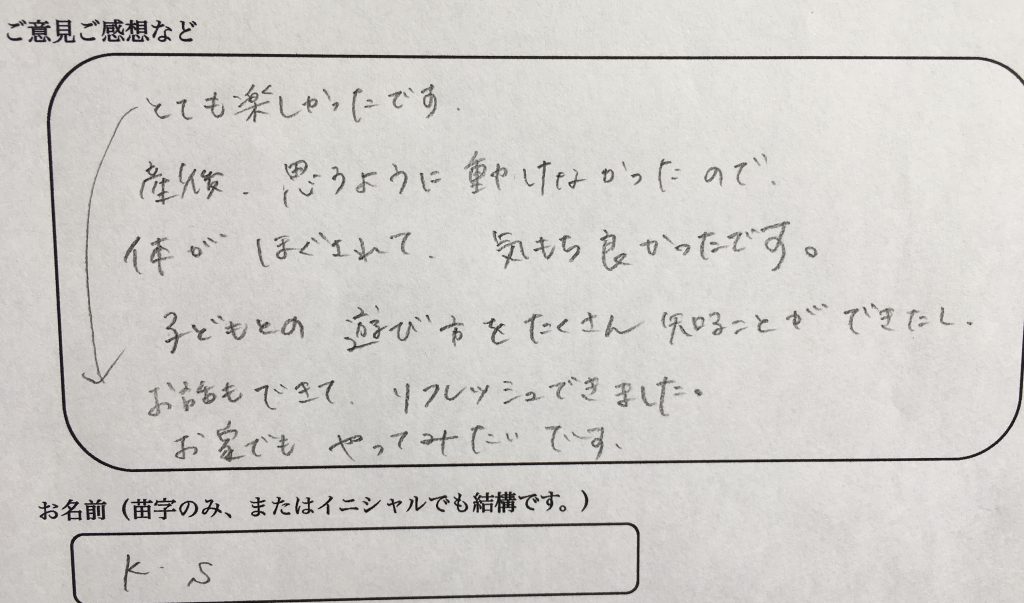 ご意見ご感想など
とても楽しかったです.
産後、思うように動けなかったので、
体がほぐされて、気もち良かったです。
子どもとの遊び方をたくさん知ることができたし、
お話もできて、リフレッシュできました。
お家でもやってみたいです、
お名前（苗字のみ、またはイニシャルでも結構です。）
K.S